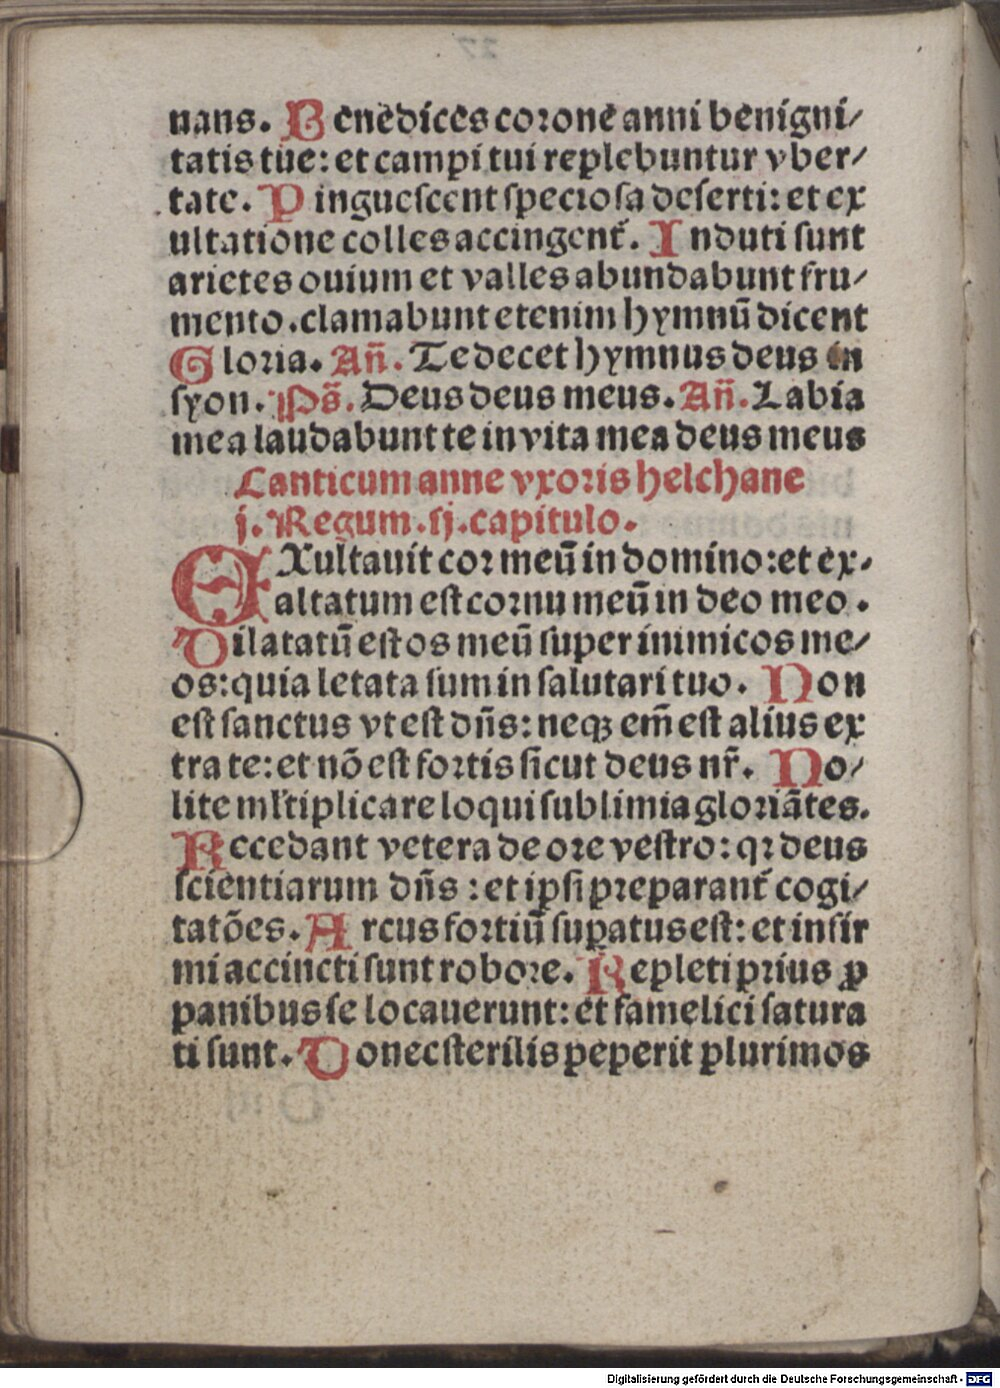 nans. Benedices corone anni benigni/
tatis tue: et campi tui replebuntur vber/
tate. Pinguescent speciosa deserti: et ex
ultatione colles accingent᷑. Induti sunt
arietes ouium et valles abundabunt fru/
mento. clamabunt etenim hymnū dicent
Gloria. Añ. Te decet hymnus deus in
syon. Ps̄. Deus deus meus. Añ. Labia
mea laudabunt te in vita mea deus meus
Canticum anne vxoris helchane
j. Regum. ij. capitulo.
EXultauit cor meū in domino: et ex-
altatum est cornu meū in deo meo.
Dilatatū est os meū super inimicos me/
os: quia letata sum in salutari tuo. Non
est sanctus vt est dn̄s: neqꝫ em̄ est alius ex
tra te: et nō est fortis sicut deus nr̄. No/
lite ml̓tiplicare loqui sublimia gloriātes.
Recedant vetera de ore vestro: qꝛ deus
scientiarum dn̄s: et ipsi preparant᷑ cogi/
tatōes. Arcus fortiū suꝑatus est: et infir
mi accincti sunt robore. Repleti prius ꝓ
panibus se locauerunt: et famelici satura
ti sunt. Donec sterilis peperit plurimos
Digitalisierung gefördert durch die Deutsche Forschungsgemeinschaft - DFG